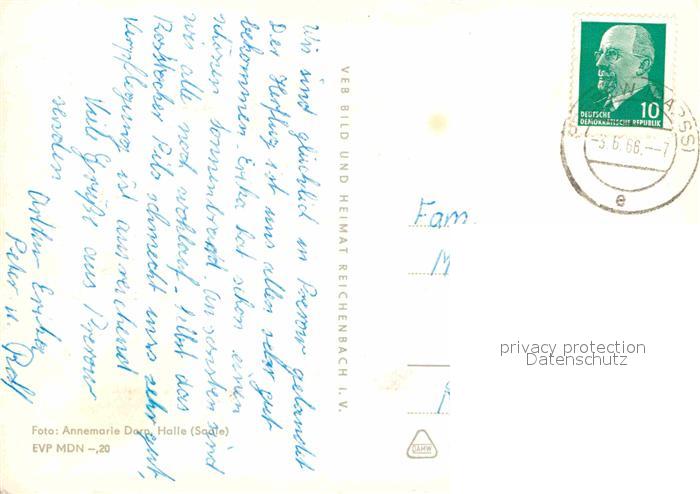 Wir sind glücklich in Prerow gelandet
Der Herflug ist uns allen sehr gut
bekommen. Erika hat schon einen
schönen Sonnenbrand. Ansonsten sind
wir alle noch wohlauf. Selbst das
Rostocker Pils schmeckt uns sehr gut,
Verpflegung ist ausreichend
Viele Grüße aus Prerow
senden Erika
Peter u. Rolf
VEB BILD UND HEIMAT REICHENBACH I. V.
Foto: Annemarie Dorp, Halle (Saale)
EVP MDN –,20
10
DEUTSCHE
DEMOKRATISCHE REPUBLIK
-3.6.66.--7
e
Fam.
M
privacy protection
Datenschutz
DAMW